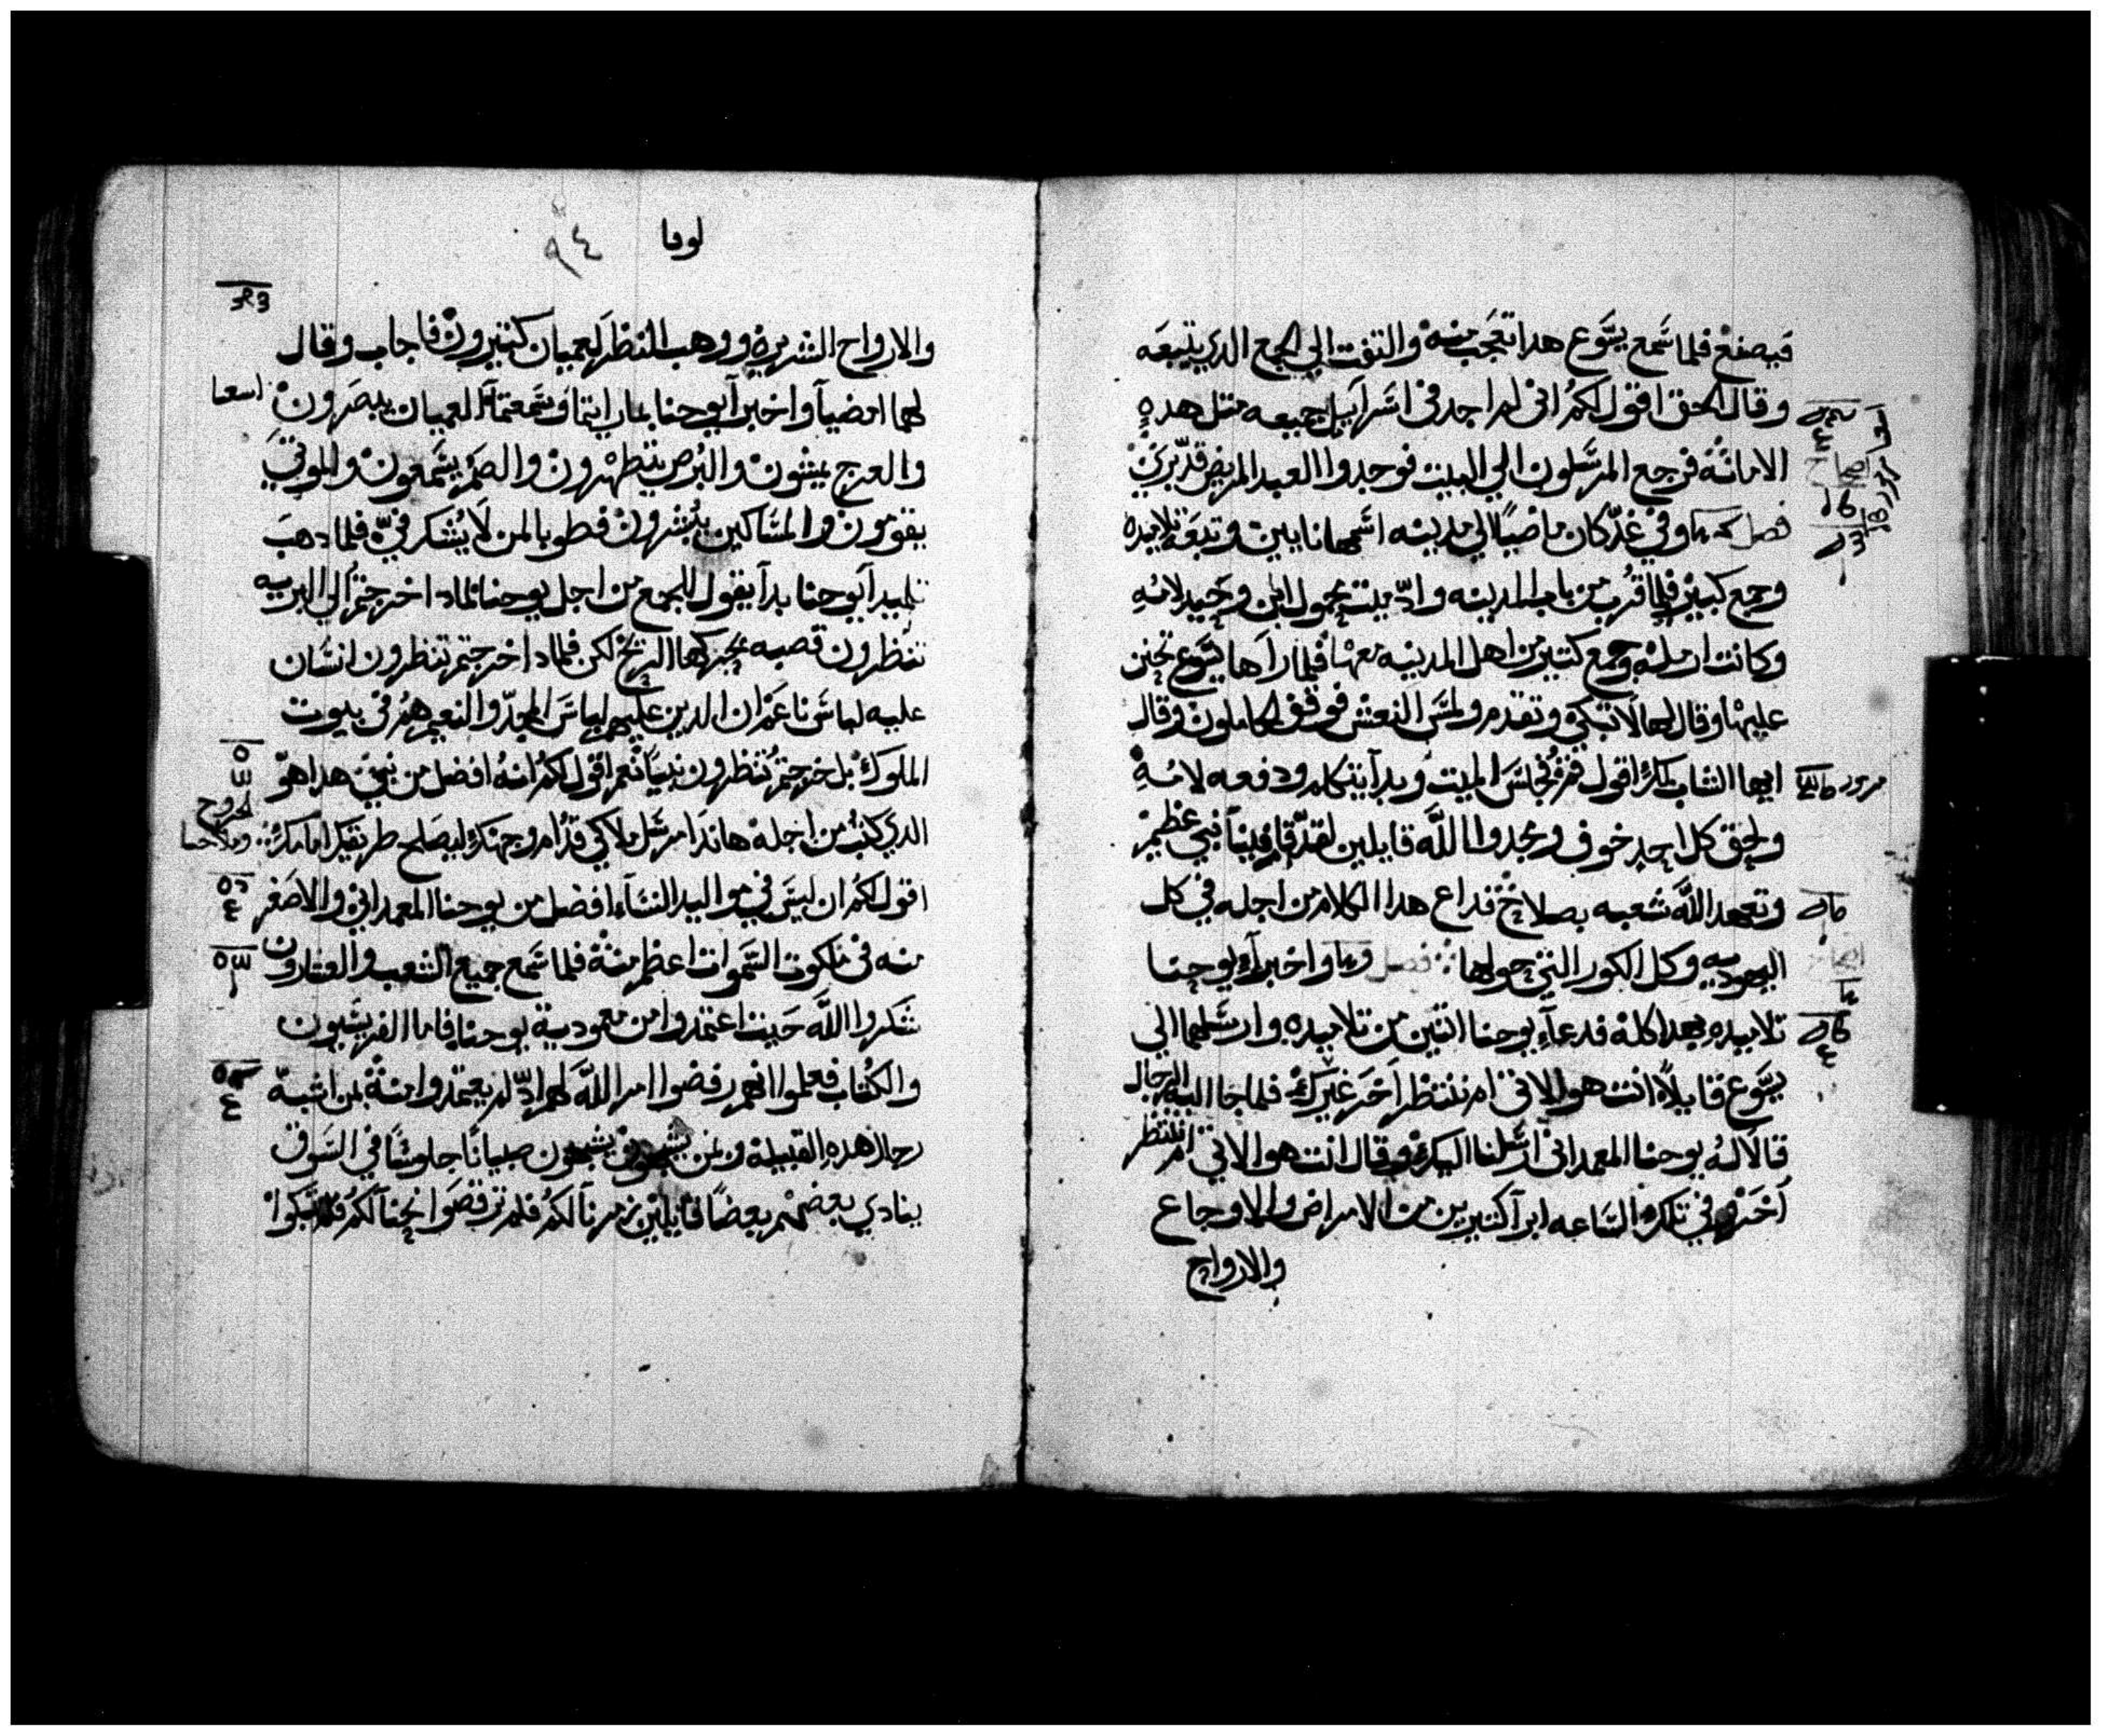 فيصنع فلما سمع يسوع هدا تعجب منه والتفت الي الجمع الدي يتبعه
وقال الحق اقول لكم اني لم اجد في اسراييل جميعه متل هده
الامانة فرجع المرسلون الي البيت فوجدوا العبد المريض قد بري
فصل وفي غد كان ماضيا الي مدينه اسمها نايين وتبعه تلاميده
وجمع كبير فلما قرب من باب المدينه واد ميت محمول ابن وحيد لامه
وكانت ارمله وجمع كتير من اهل المدينه معها فلما راها يسوع تحنن
عليها وقال لها لا تبكي وتقدم ولمس النعش فوقف الحاملون وقال
ايها الشاب لك اقول قم فجلس الميت وبدا يتكلم ودفعه لامه
ولحق كل احد خوف ومجدوا الله قايلين لقد قام فينا نبي عظيم
وتعهد الله شعبه بصلاح فداع هدا الكلام من اجله في كل
اليهوديه وكل الكور التي حولها فصل واخبر يوحنا
تلاميده بهدا كله فدعا يوحنا اتنين من تلاميده وارسلهما الي
يسوع قايلا انت هو الاتي ام ننتظر اخر غيرك فلما جا اليه الرجال
قالا له يوحنا المعمداني ارسلنا اليك وقال انت هو الاتي ام ننتظر
اخر وفي تلك الساعه ابرا كتيرين من الامراض والاوجاع
والارواح
لوقا
٩٤
والارواح الشريره ووهب النظر لعميان كتيرون فاجاب وقال
لهما امضيا واخبرا يوحنا بما رايتما وسمعتما العميان يبصرون
والعرج يمشون والبرص يتطهرون والصم يسمعون والموتي
يقومون والمساكين يبشرون فطوبا لمن لا يشكر في فلما دهب
تلميدا يوحنا بدا يقول للجمع من اجل يوحنا لمادا خرجتم الي البريه
تنظرون قصبه تحركها الريح لكن فلمادا خرجتم تنظرون انسان
عليه لباس ناعم ان الدين عليهم لباس المجد والنعيم هم في بيوت
الملوك بل خرجتم تنظرون نبيا نعم اقول لكم انه افضل من نبي هدا هو
الدي كتب من اجله هاندا مرسل ملاكي قدام وجهك ليصلح طريقك امامك
اقول لكم ان ليس في مواليد النسا افضل من يوحنا المعمداني والاصغر
منه في ملكوت السموات اعظم منه فلما سمع جميع الشعب والعشارون
شكروا الله حيت اعتمدوا من معموديه يوحنا فاما الفريسيون
والكتاب فعلموا انهم رفضوا امر الله لهم اد لم يعتمدوا منه بمن اشبه
رجال هده القبيله ومن يشبهون صبيانا جلوسا في السوق
ينادي بعضهم بعضا قايلين زمرنا لكم فلم ترقصوا نحنا لكم فلم تبكوا